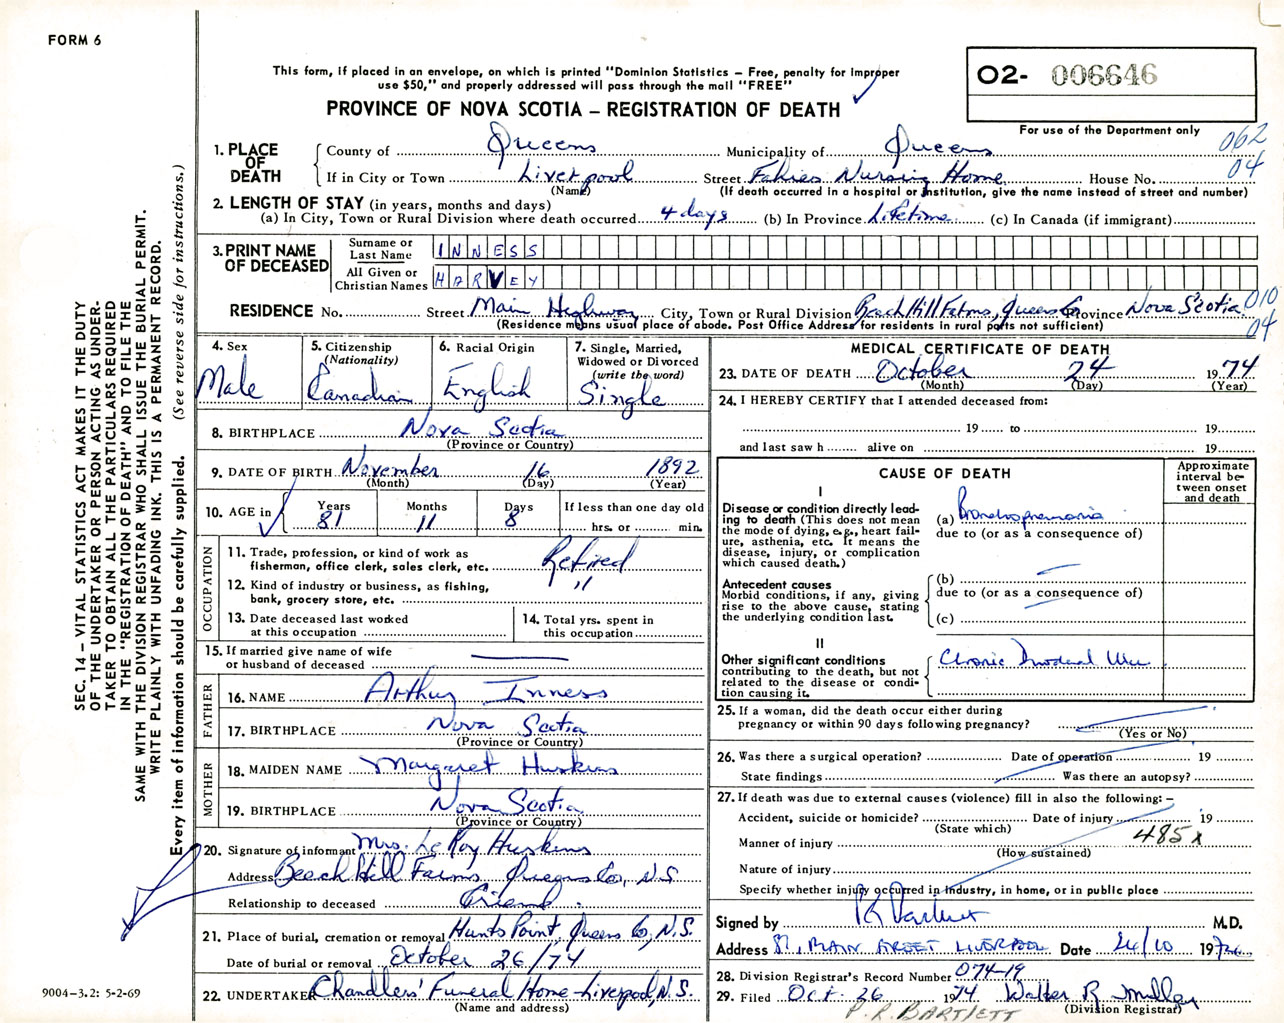 FORM 6
This form, if placed in an envelope, on which is printed "Dominion Statistics – Free, penalty for improper
use $50," and properly addressed will pass through the mail "FREE"
PROVINCE OF NOVA SCOTIA – REGISTRATION OF DEATH
02- 006646
For use of the Department only
062
04
SEC. 14 – VITAL STATISTICS ACT MAKES IT THE DUTY
OF THE UNDERTAKER OR PERSON ACTING AS UNDER-
TAKER TO OBTAIN ALL THE PARTICULARS REQUIRED
IN THE "REGISTRATION OF DEATH" AND TO FILE THE
SAME WITH THE DIVISION REGISTRAR WHO SHALL ISSUE THE BURIAL PERMIT.
WRITE PLAINLY WITH UNFADING INK. THIS IS A PERMANENT RECORD.
Every item of information should be carefully supplied. (See reverse side for instructions.)
1. PLACE OF DEATH
County of Queens Municipality of Queens
If in City or Town Liverpool Street Fahies Nursing Home House No.
(Name) (If death occurred in a hospital or institution, give the name instead of street and number)
2. LENGTH OF STAY (in years, months and days)
(a) In City, Town or Rural Division where death occurred 4 days (b) In Province Lifetime (c) In Canada (if immigrant)
3. PRINT NAME OF DECEASED
Surname or Last Name INNESS
All Given or Christian Names HARVEY
RESIDENCE No. Street Main Highway City, Town or Rural Division Beach Hill Farms, Queens Co Province Nova Scotia
010
04
(Residence means usual place of abode. Post Office Address for residents in rural parts not sufficient)
4. Sex Male
5. Citizenship (Nationality) Canadian
6. Racial Origin English
7. Single, Married, Widowed or Divorced (write the word) Single
8. BIRTHPLACE Nova Scotia
(Province or Country)
9. DATE OF BIRTH November 16 1892
(Month) (Day) (Year)
10. AGE in Years 81 Months 11 Days 8 If less than one day old hrs. or min.
OCCUPATION
11. Trade, profession, or kind of work as
fisherman, office clerk, sales clerk, etc. Retired
12. Kind of industry or business, as fishing,
bank, grocery store, etc. "
13. Date deceased last worked
at this occupation
14. Total yrs. spent in
this occupation
15. If married give name of wife
or husband of deceased
FATHER
16. NAME Arthur Inness
17. BIRTHPLACE Nova Scotia
(Province or Country)
MOTHER
18. MAIDEN NAME Margaret Huskins
19. BIRTHPLACE Nova Scotia
(Province or Country)
20. Signature of informant Mrs. LeRoy Huskins
Address Beach Hill Farms Queens Co, N.S
Relationship to deceased Friend.
21. Place of burial, cremation or removal Hunts Point, Queens Co, N.S.
Date of burial or removal October 26/74
22. UNDERTAKER Chandlers' Funeral Home - Liverpool, N.S.
(Name and address)
9004-3.2: 5-2-69
MEDICAL CERTIFICATE OF DEATH
23. DATE OF DEATH October 24 1974
(Month) (Day) (Year)
24. I HEREBY CERTIFY that I attended deceased from:
19 to 19
and last saw h alive on 19
CAUSE OF DEATH
Approximate interval between onset and death
I
Disease or condition directly lead-
ing to death (This does not mean
the mode of dying, e.g., heart fail-
ure, asthenia, etc. It means the
disease, injury, or complication
which caused death.)
(a) Bronchopneumonia
due to (or as a consequence of)
Antecedent causes
Morbid conditions, if any, giving
rise to the above cause, stating
the underlying condition last.
(b)
due to (or as a consequence of)
(c)
II
Other significant conditions
contributing to the death, but not
related to the disease or condi-
tion causing it.
Chronic Duodenal Ulcer
25. If a woman, did the death occur either during
pregnancy or within 90 days following pregnancy?
(Yes or No)
26. Was there a surgical operation? Date of operation 19
State findings Was there an autopsy?
27. If death was due to external causes (violence) fill in also the following: –
Accident, suicide or homicide? Date of injury 19
(State which)
485x
Manner of injury
(How sustained)
Nature of injury
Specify whether injury occurred in industry, in home, or in public place
Signed by M.D.
Address MAIN STREET LIVERPOOL Date 24/10 1974
28. Division Registrar's Record Number 074-19
29. Filed Oct. 26 1974 Walter R Mullen
(Division Registrar)
P. R. BARTLETT